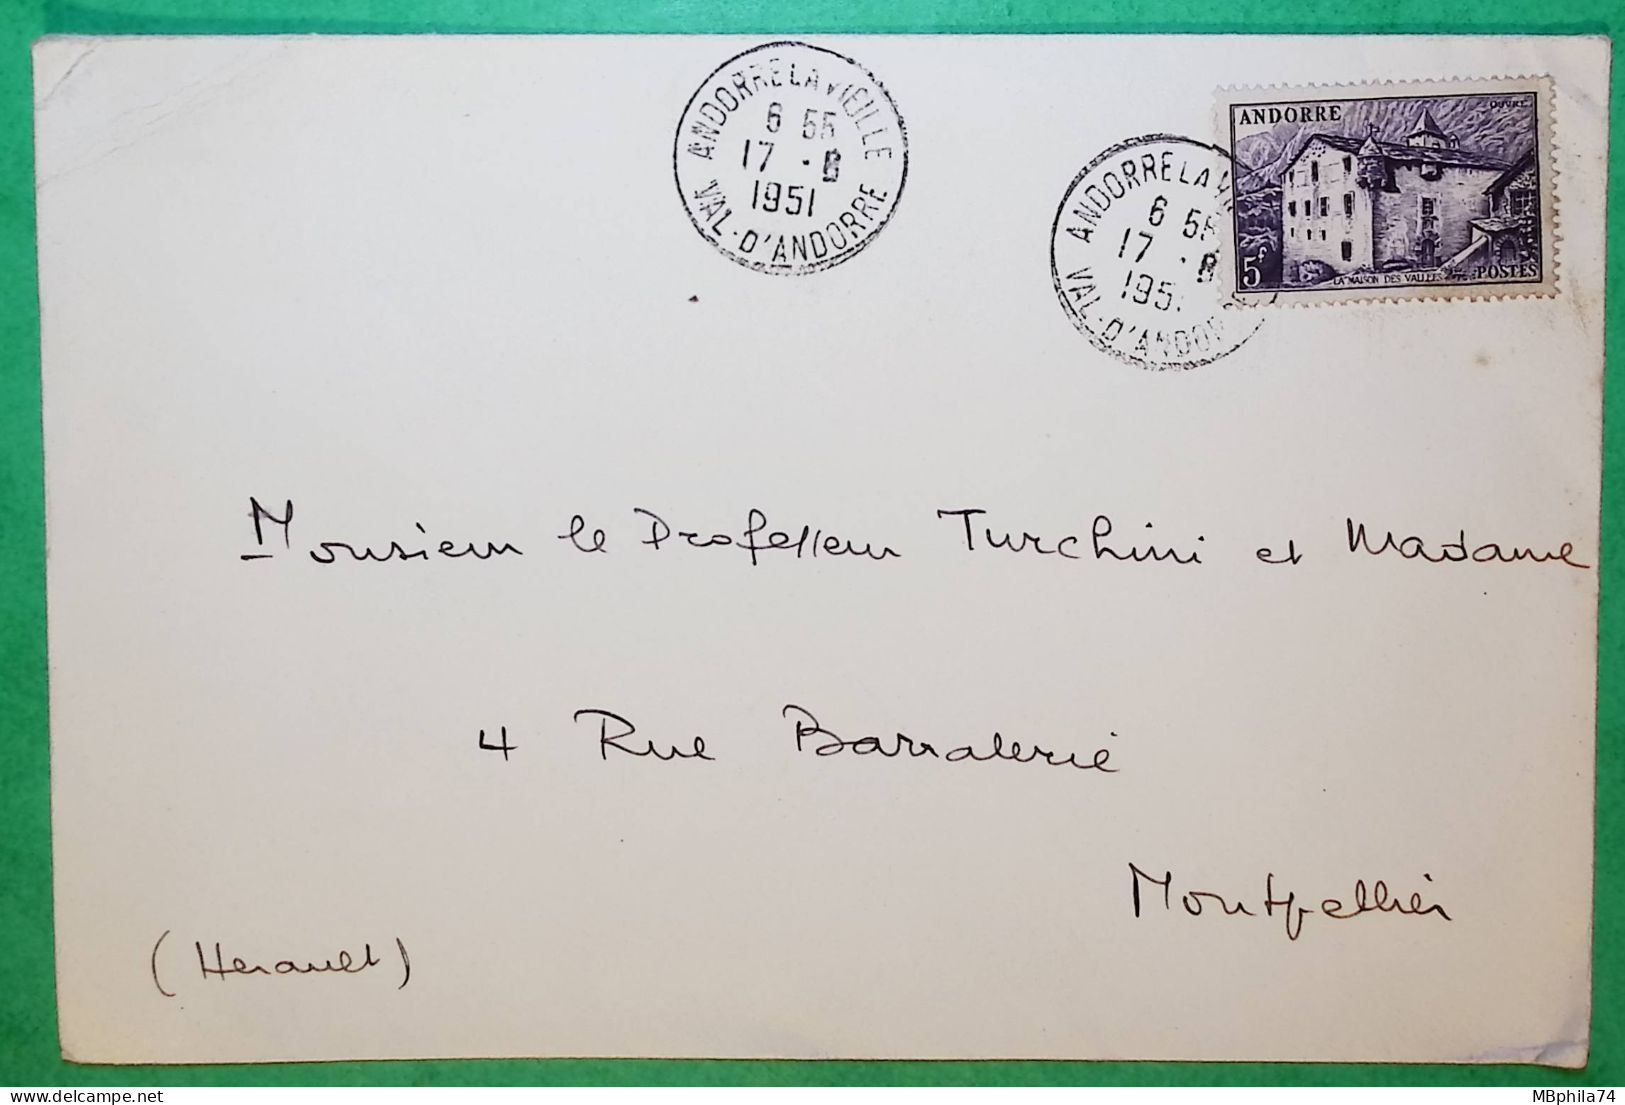 ANDORRE LA VIEILLE
6 55
17 - 8
1951
VAL-D'ANDORRE
ANDORRE LA VI
6 55
17 - 8
195
VAL-D'ANDOR
ANDORRE
OUVRÉ
5f
LA MAISON DES VALLÉES
POSTES
Monsieur le Professeur Turchini et Madame
4 Rue Barralerie
Montpellier
(Herault)
MBphila74